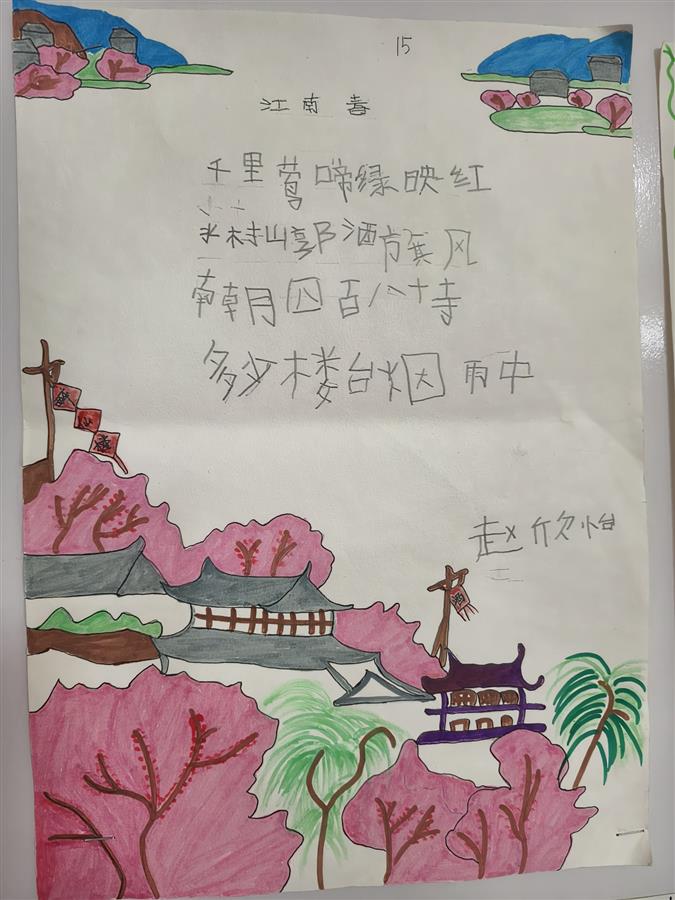 15
江南春
千里莺啼绿映红
水村山郭酒旗风
南朝四百八十寺
多少楼台烟雨中
赵欣怡